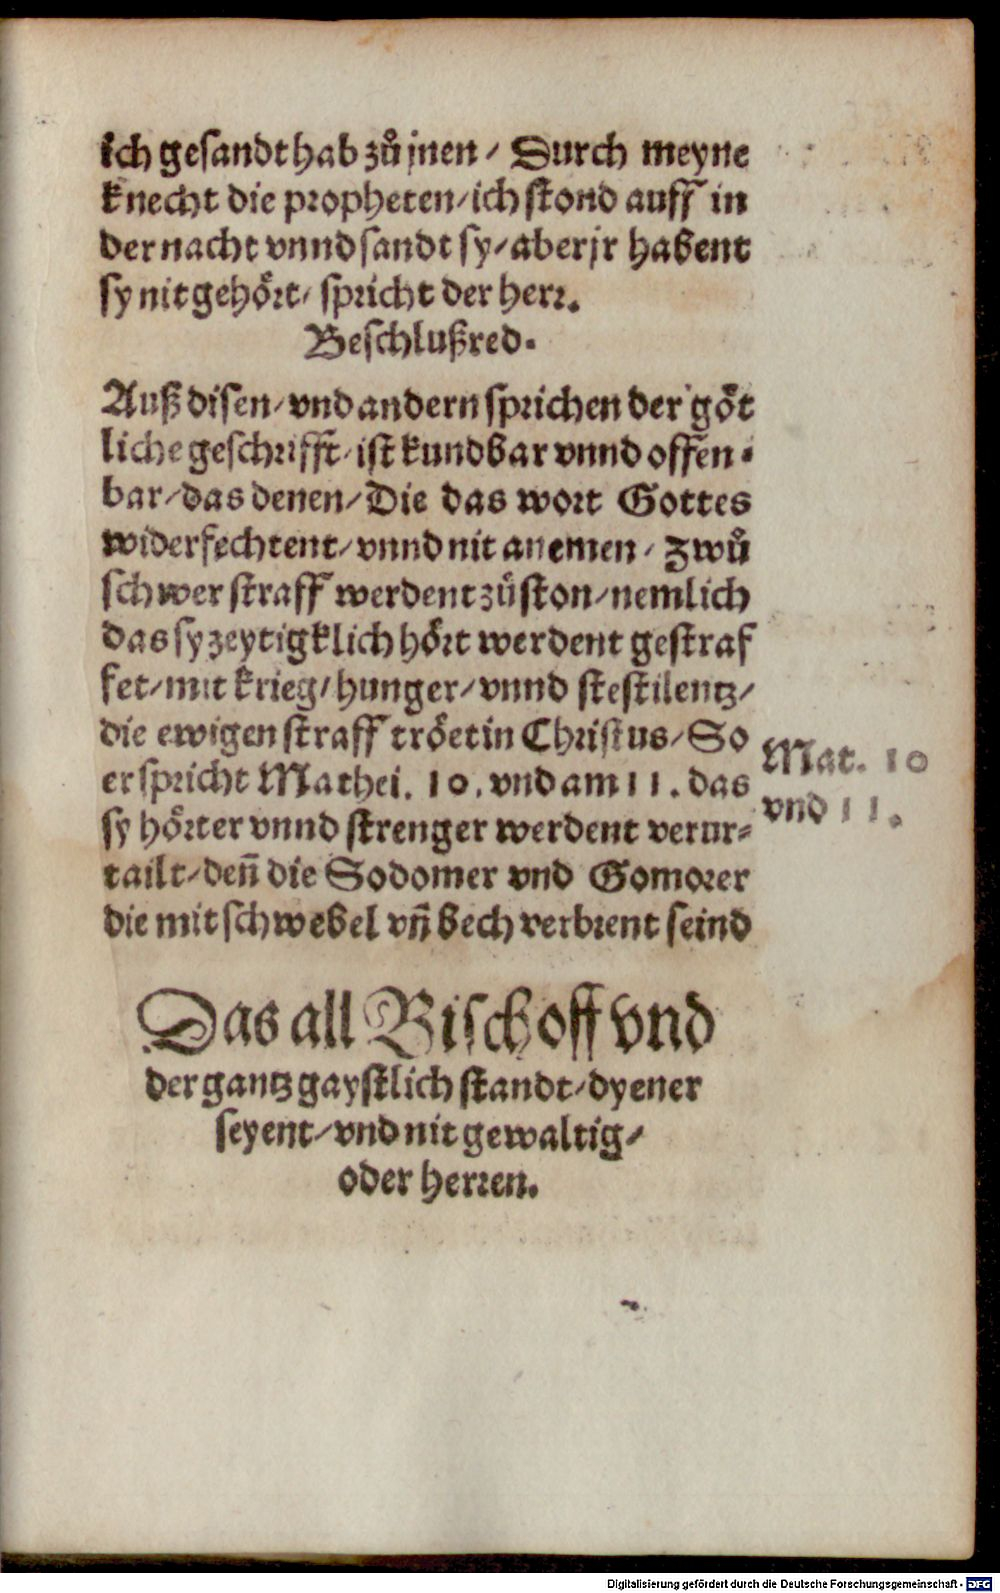 ich gesandt hab zů jnen / Durch meyne
knecht die propheten / ich stond auff in
der nacht vnnd sandt sy / aber jr habent
sy nit gehört / spricht der herr.
Beschlußred.
Auß disen / vnd andern sprichen der göt
liche geschrifft / ist kundbar vnnd offen⸗
bar / das denen / Die das wort Gottes
widerfechtent / vnnd nit anemen / zwů
schwer straff werdent zůston / nemlich
das sy zeytigklich hört werdent gestraf
fet / mit krieg / hunger / vnnd stestilentz /
die ewigen straff tröet in Christus / So
er spricht Mathei. 10. vnd am 11. das
sy hörter vnnd strenger werdent verur⸗
tailt / deñ die Sodomer vnd Gomorer
die mit schwebel vñ bech verbrent seind
Mat. 10
vnd 11.
Das all Bischoff vnd
der gantz gaystlich standt / dyener
seyent / vnd nit gewaltig /
oder herren.
Digitalisierung gefördert durch die Deutsche Forschungsgemeinschaft - DFG